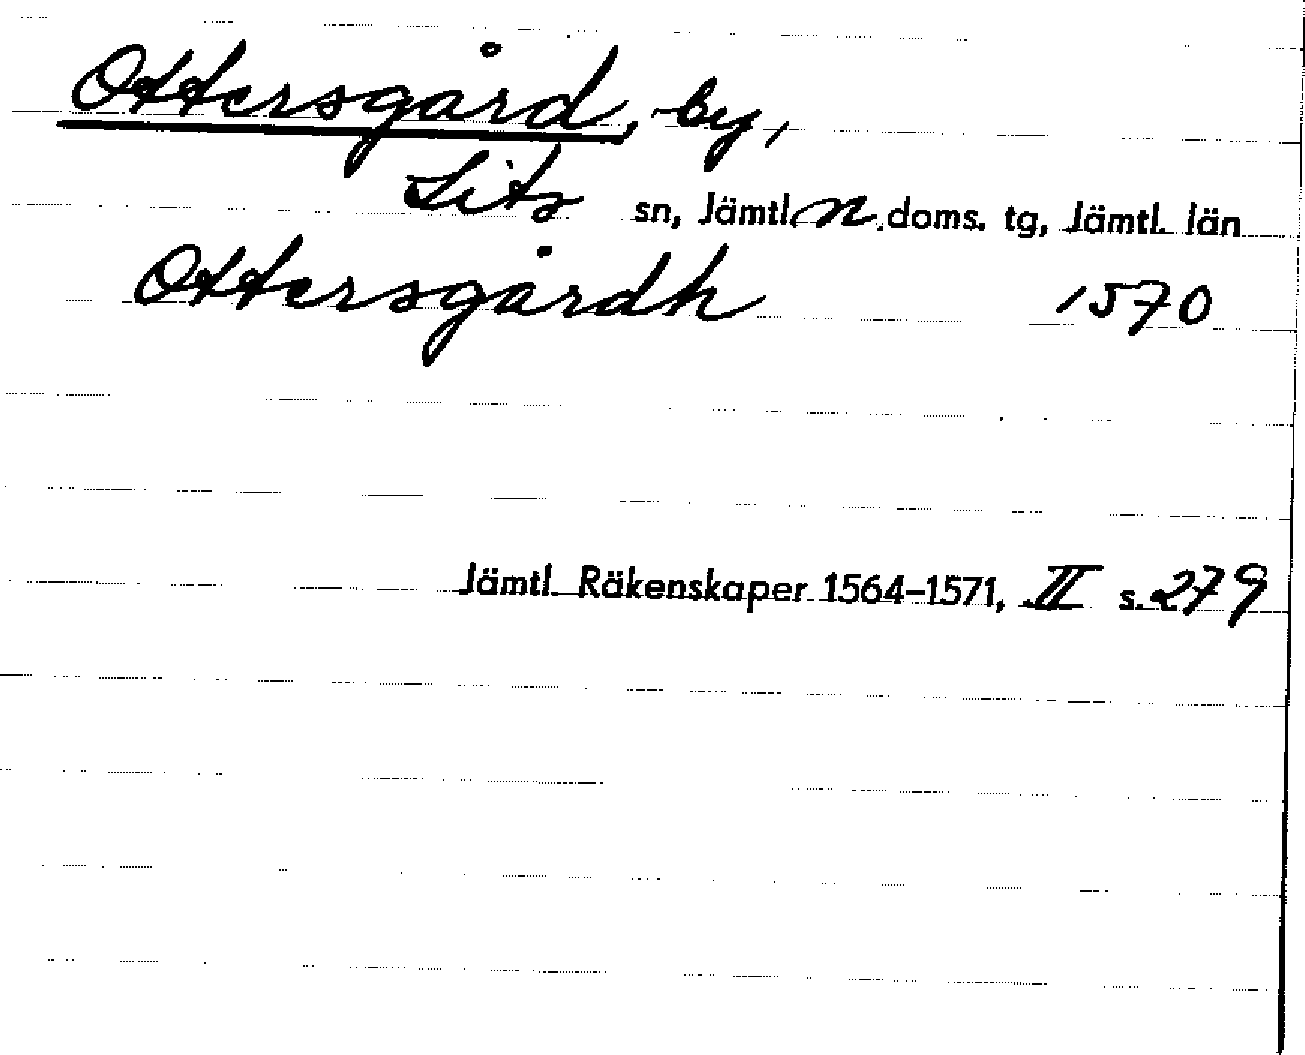 Ottersgård, by,
Lits sn, Jämtl. n. doms. tg, Jämtl. län
Ottersgårdh 1570
Jämtl. Räkenskaper 1564-1571, II s. 279